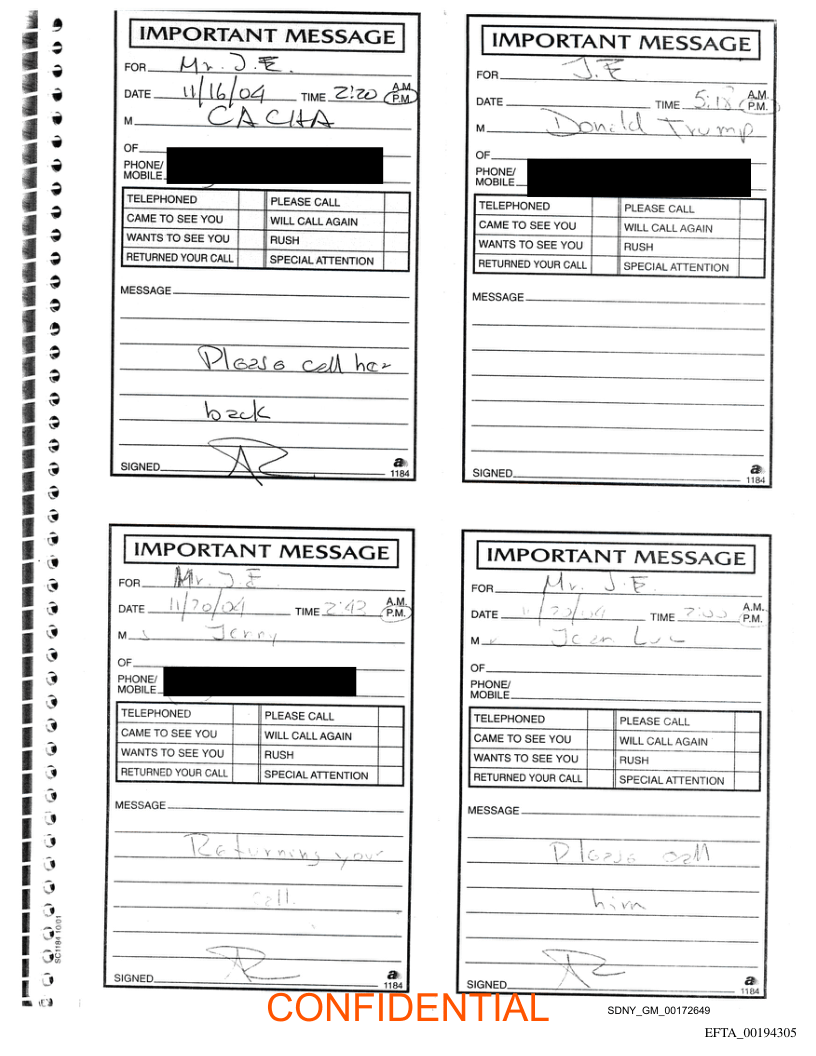 IMPORTANT MESSAGE
FOR Mr. J.E.
DATE 11/16/04 TIME 2:20 A.M. P.M.
M CACHA
OF
PHONE/
MOBILE
TELEPHONED PLEASE CALL
CAME TO SEE YOU WILL CALL AGAIN
WANTS TO SEE YOU RUSH
RETURNED YOUR CALL SPECIAL ATTENTION
MESSAGE
Please call her
back
SIGNED
a
1184
IMPORTANT MESSAGE
FOR J.E
DATE TIME 5:18 A.M. P.M.
M Donald Trump
OF
PHONE/
MOBILE
TELEPHONED PLEASE CALL
CAME TO SEE YOU WILL CALL AGAIN
WANTS TO SEE YOU RUSH
RETURNED YOUR CALL SPECIAL ATTENTION
MESSAGE
SIGNED
a
1184
IMPORTANT MESSAGE
FOR Mr. J.E
DATE 11/20/04 TIME 2:42 A.M. P.M.
M Jerry
OF
PHONE/
MOBILE
TELEPHONED PLEASE CALL
CAME TO SEE YOU WILL CALL AGAIN
WANTS TO SEE YOU RUSH
RETURNED YOUR CALL SPECIAL ATTENTION
MESSAGE
Returning your
call.
SIGNED
a
1184
IMPORTANT MESSAGE
FOR Mr. J.E.
DATE 11/20/04 TIME A.M. P.M.
M Jean Luc
OF
PHONE/
MOBILE
TELEPHONED PLEASE CALL
CAME TO SEE YOU WILL CALL AGAIN
WANTS TO SEE YOU RUSH
RETURNED YOUR CALL SPECIAL ATTENTION
MESSAGE
Please call
him
SIGNED
a
1184
SC1184 10/01
CONFIDENTIAL
SDNY_GM_00172649
EFTA_00194305